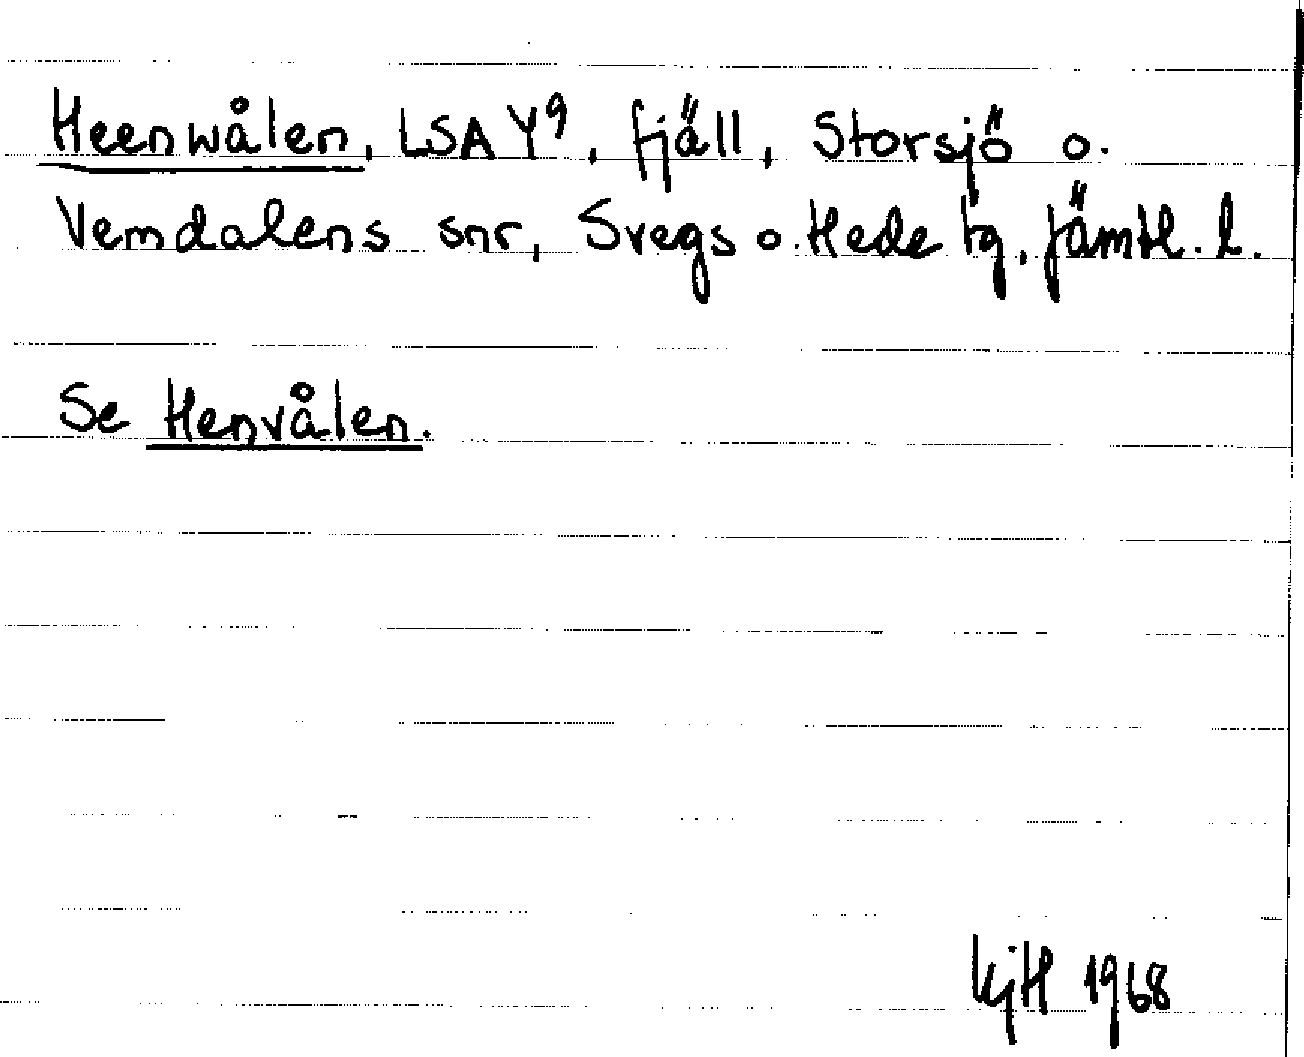 Heenwålen, LSA Y9, fjäll, Storsjö o.
Vemdalens snr, Svegs o. Hede tg, Jämtl. l.
Se Henvålen.
KjH 1968